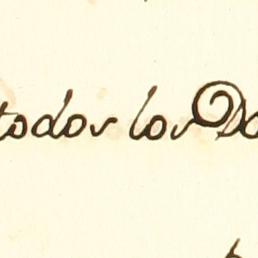 todos los Do